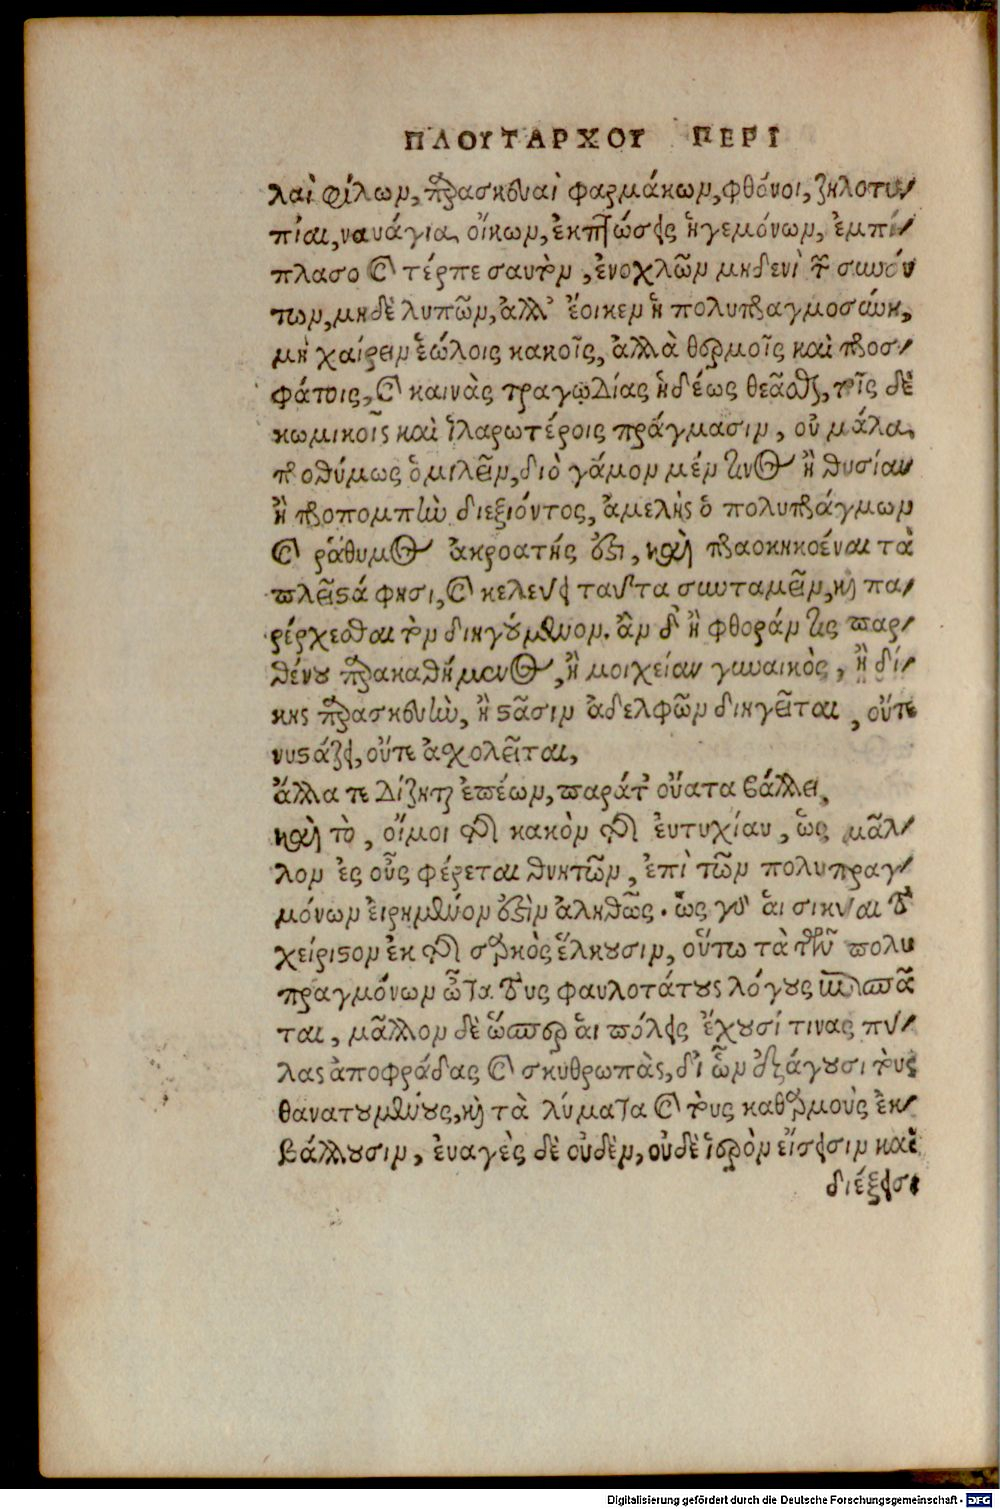 ΠΛΟΥΤΑΡΧΟΥ ΠΕΡΙ
λαὶ φίλων, παρασκευαὶ φαρμάκων, φθόνοι, ζηλοτυ-
πίαι, ναυάγια οἴκων, ἐκπτώσεις ἡγεμόνων, ἐμπί-
πλασο καὶ τέρπε σαυτὸν, ἐνοχλῶν μηδενὶ τῶν συνόν
των, μηδὲ λυπῶν, ἀλλ' ἔοικεν ἡ πολυπραγμοσύνη,
μὴ χαίρειν ἑώλοις κακοῖς, ἀλλὰ θερμοῖς καὶ προσ-
φάτοις, καὶ καινὰς τραγῳδίας ἡδέως θεᾶσθαι, τοῖς δὲ
κωμικοῖς καὶ ἱλαρωτέροις πράγμασιν, οὐ μάλα
προθύμως ὁμιλεῖν, διὸ γάμον μέν τινος ἢ θυσίαν
ἢ προπομπὴν διεξιόντος, ἀμελὴς ὁ πολυπράγμων
καὶ ῥάθυμος ἀκροατής ἐστι, καὶ προακηκοέναι τὰ
πλεῖστά φησι, καὶ κελεύει ταῦτα συνταμεῖν, καὶ πα-
ρέρχεσθαι τὸν διηγούμενον. ἂν δ' ἢ φθοράν τις παρ-
θένου παρακαθήμενος, ἢ μοιχείαν γυναικὸς, ἢ δί-
κης παρασκευὴν, ἢ στᾶσιν ἀδελφῶν διηγεῖται, οὔτε
νυστάζει, οὔτε ἀσχολεῖται,
ἄλλα τε δίζηται ἐπέων, παράτ' οὔατα βάλλει,
καὶ τὸ, οἴμοι τὸ κακὸν τῆς εὐτυχίαν, ὡς μᾶλ-
λον ἐς οὖς φέρεται θνητῶν, ἐπὶ τῶν πολυπραγ-
μόνων εἰρημένον ἐστὶν ἀληθῶς. ὡς γὰρ αἱ σικύαι τὸ
χείριστον ἐκ τῆς σαρκὸς ἕλκουσιν, οὕτω τὰ τῶν πολυ
πραγμόνων ὦτα τοὺς φαυλοτάτους λόγους ἐπισπᾶ
ται, μᾶλλον δὲ ὥσπερ αἱ πόλεις ἔχουσί τινας πύ-
λας ἀποφράδας καὶ σκυθρωπὰς, δι' ὧν ἐξάγουσι τοὺς
θανατουμένους, καὶ τὰ λύματα καὶ τοὺς καθαρμοὺς ἐκ-
βάλλουσιν, εὐαγὲς δὲ οὐδὲν, οὐδὲ ἱερὸν εἴσεισιν καὶ
διέξεισι
Digitalisierung gefördert durch die Deutsche Forschungsgemeinschaft - DFG